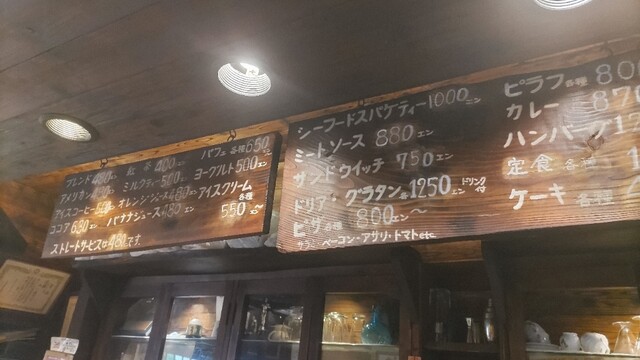 ブレンド 紅茶 400エン パフェ 各種 650エン
アメリカン ミルクティー 500エン ヨーグルト 500エン
アイスコーヒー オレンジジュース 480エン アイスクリーム 各種
ココア 630エン バナナジュース 480エン 550エン〜
ストレートサービス 480です。
シーフードスパゲティー 1000エン
ミートソース 880エン
サンドウィッチ 750エン
ドリア・グラタン 各種 1250エン ドリンク付
ピザ 各種 800エン〜
サラミ・ベーコン・アサリ・トマト etc
ピラフ 各種 800
カレー 870
ハンバーグ
定食 各種
ケーキ 各種